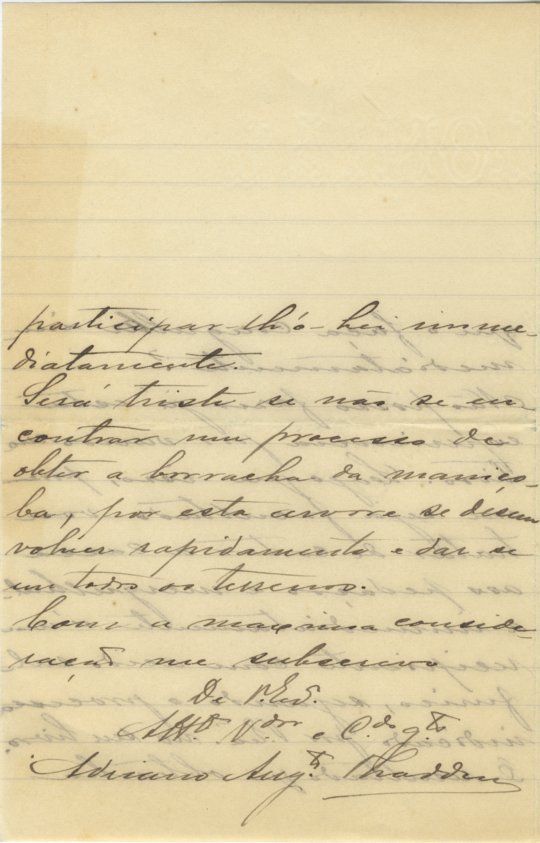 participar lh'ó-hei imme-
diatamente.
Será triste se não se en-
contrar um processo de
obter a borracha da maniço-
ba, por esta arvore se desen
volver rapidamente e dar-se
em todos os terrenos.
Com a maxima conside-
ração me subscrevo
De V. Exª.
Attº Vdor e C.do
Adriano Augto